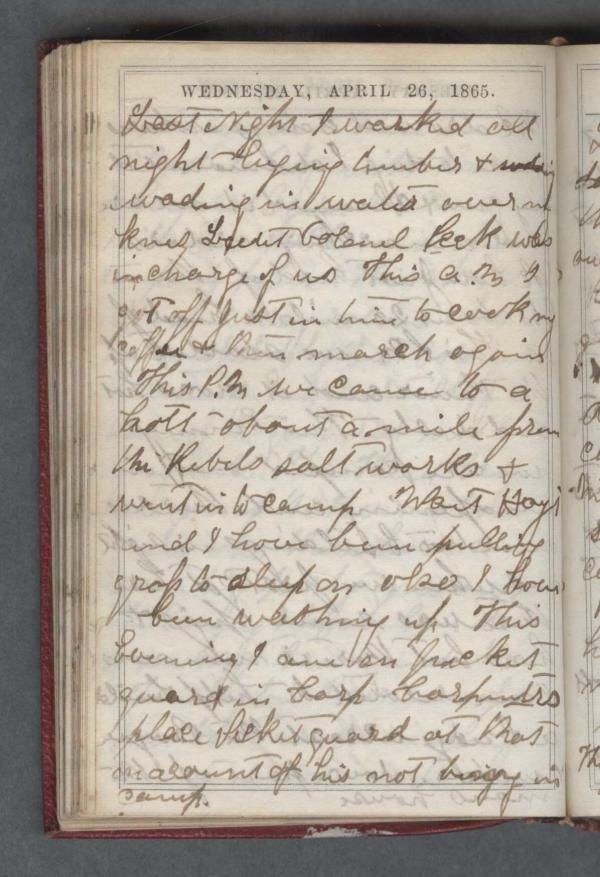 WEDNESDAY, APRIL 26, 1865.
Last Night I worked all
night luging timber &
wading in water over m
knes Lieut Colonel Peek was
in charge of us This A.M I
got off just in time to cook my
coffee & then march again
This P.M we came to a
hott about a mile from
the Rebels salt works &
went into camp Wait Hoyt
and I have been pulling
grass to sleep on also I have
been washing up This
Evening I am on picket
guard in Corp Carpenters
place picket guard at that
on acount of his not being in
camp.